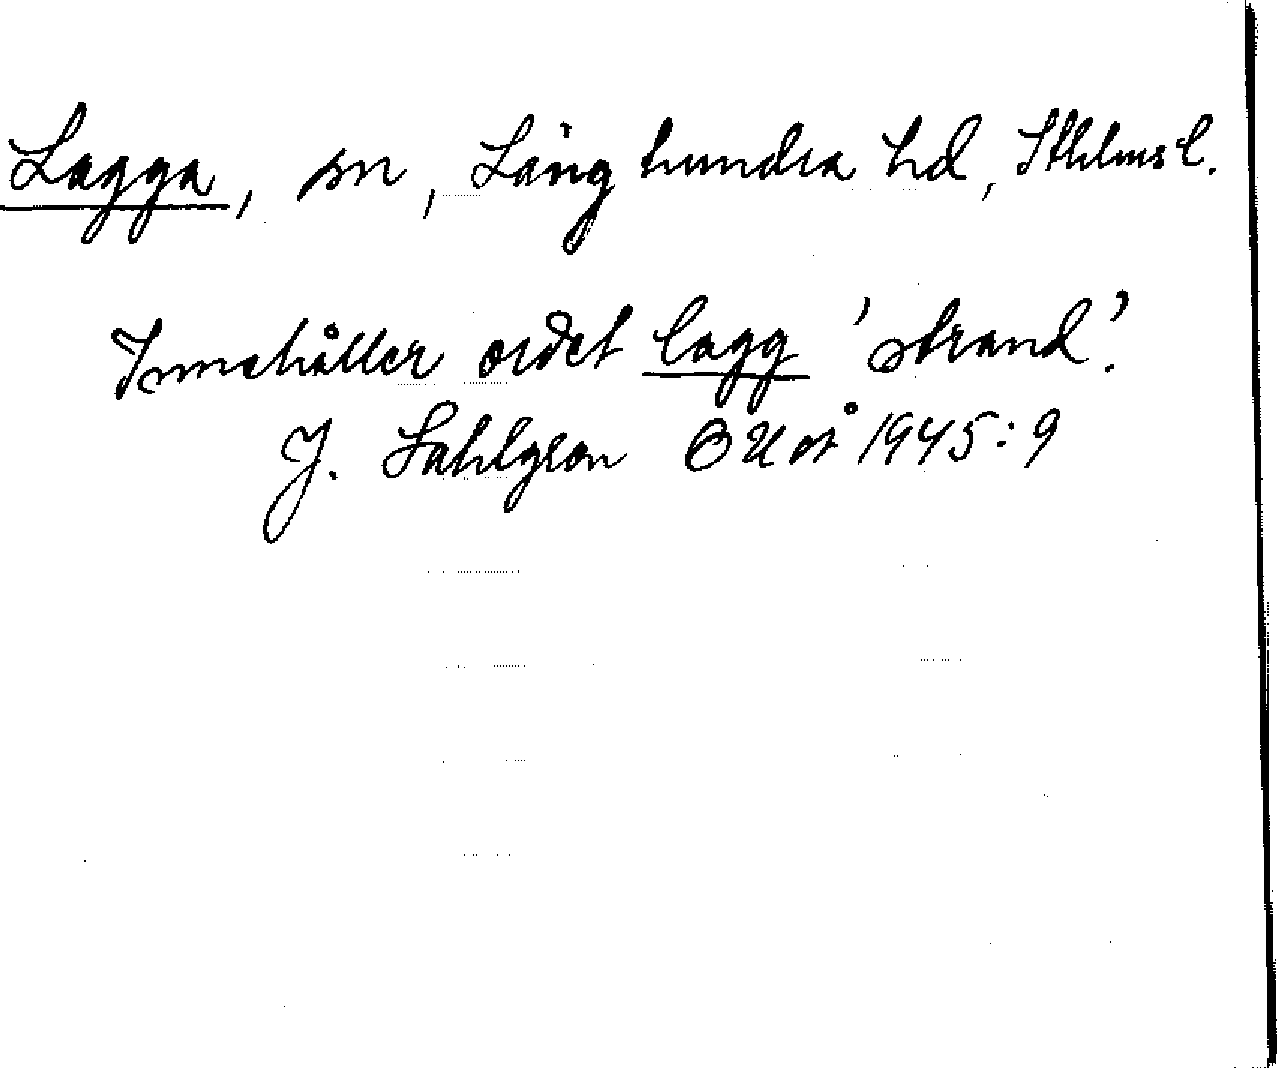 Lagga, sn, Långhundra hd, Sthlms l.
Innehåller ordet lagg 'strand'.
J. Sahlgren OUÅ 1945:9